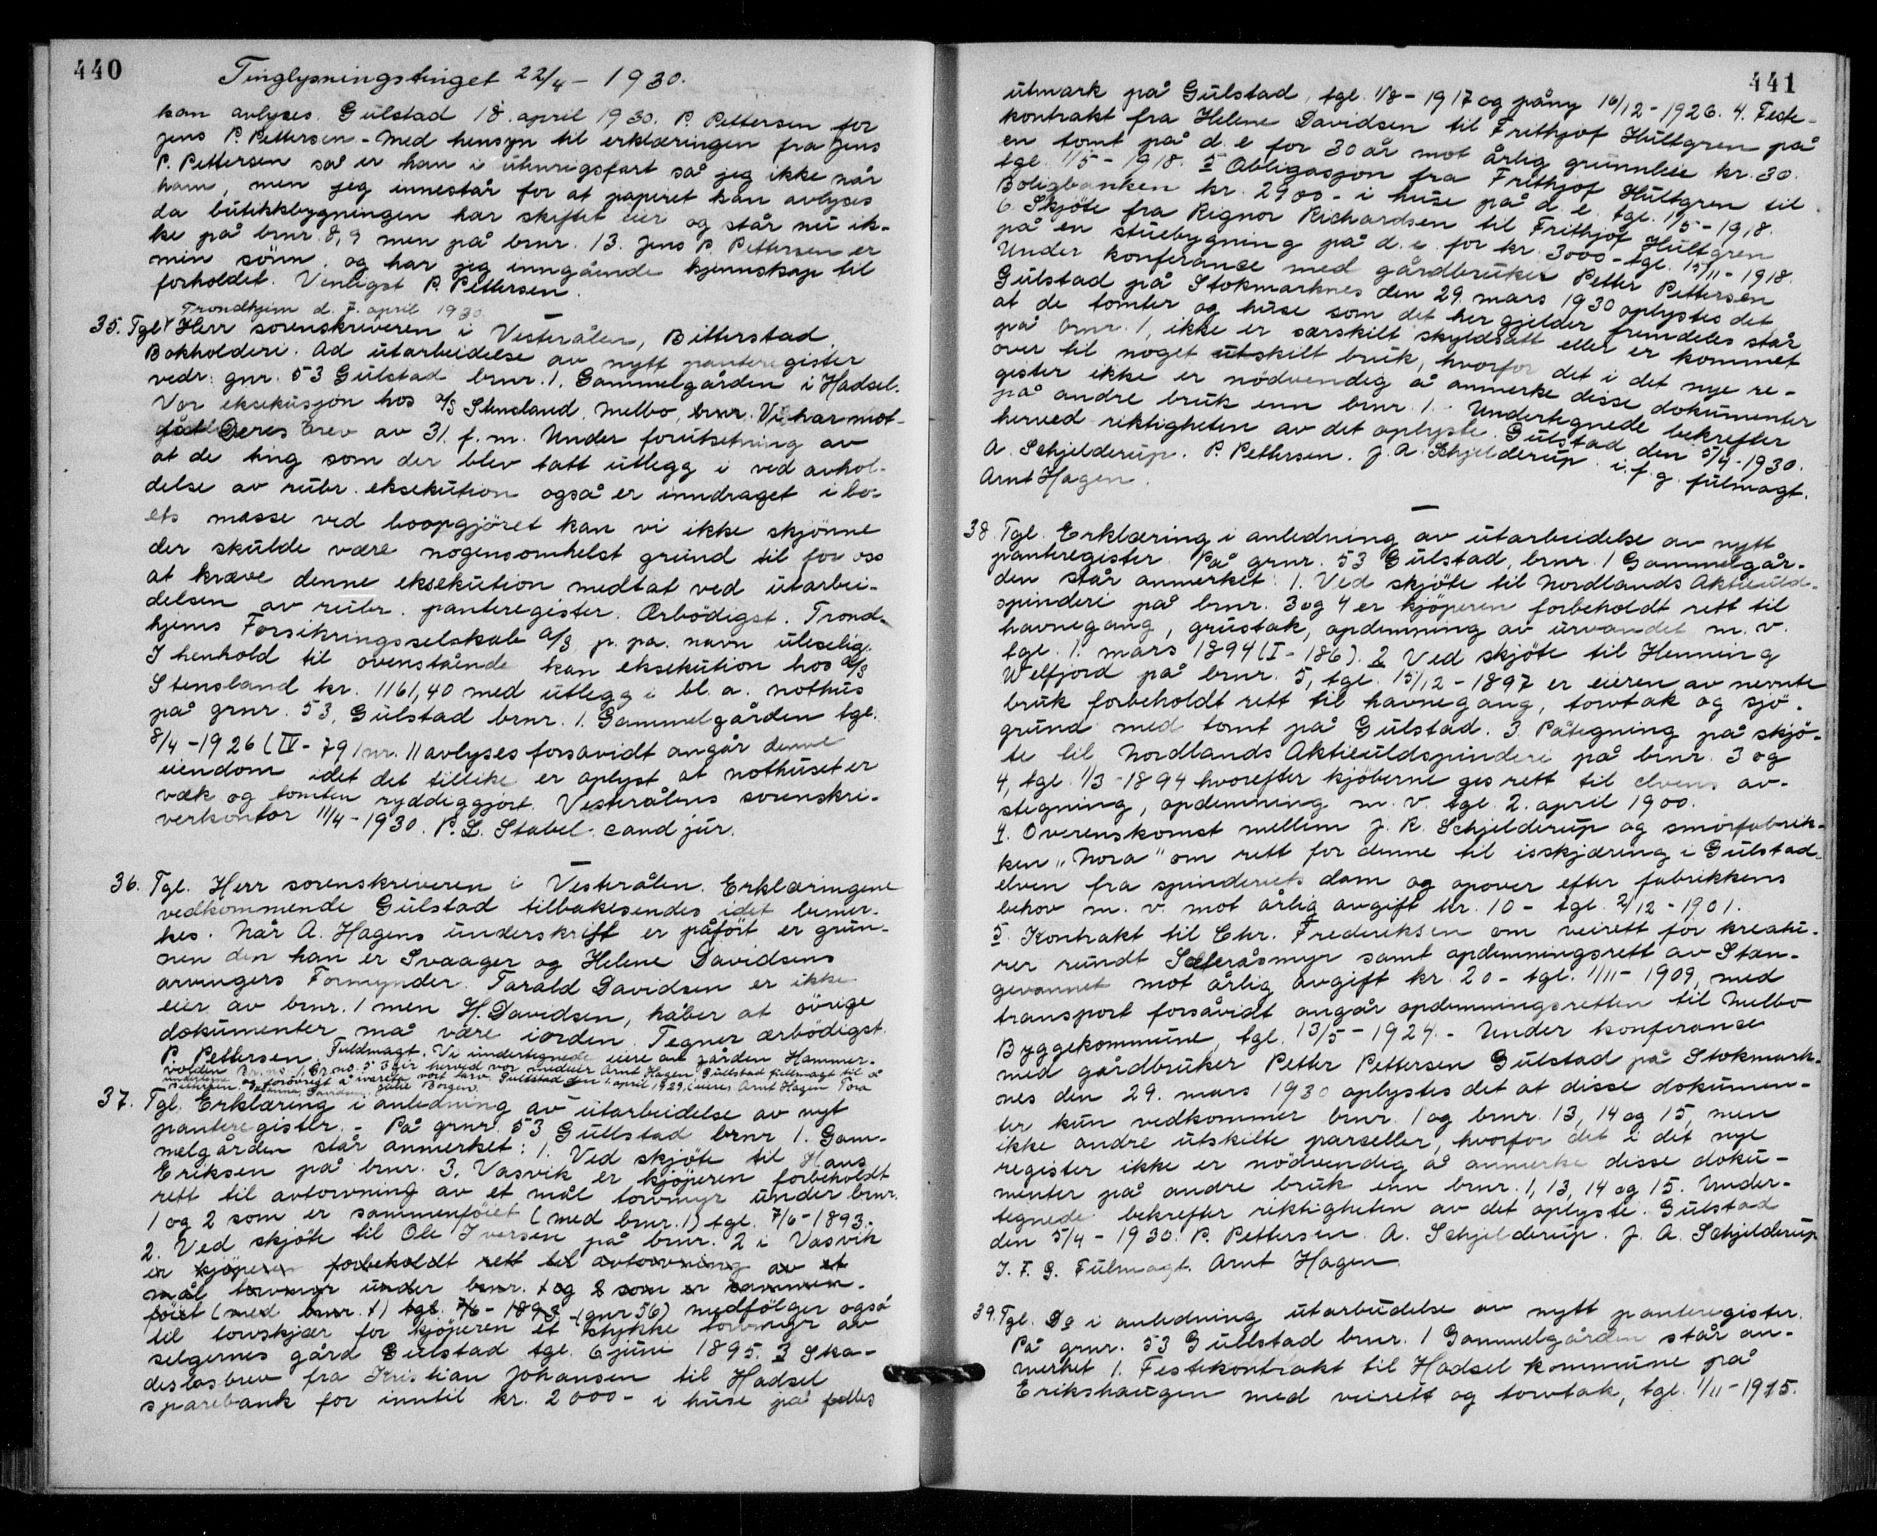 440
Tinglysningstinget 22/4 - 1930.
kan avlyses. Gulstad 18. april 1930. P. Pettersen for
Jens P. Pettersen - Med hensyn til erklæringen fra Jens
P. Pettersen så er han i utenrigsfart så jeg ikke når
ham, men jeg innestår for at papiret kan avlyses
da butikkbygningen har skiftet eier og står nu ik-
ke på brnr. 8, 9 men på brnr. 13. Jens P. Pettersen er
min sönn, og har jeg inngående kjennskap til
forholdet. Venligst P. Pettersen.
Trondhjem d. 7. april 1930.
35. Tgl. Herr sorenskriveren i Vesterålen, Bitterstad.
Bokholderi. Ad utarbeidelse av nytt panteregister
vedr. gnr. 53 Gulstad brnr. 1. Gammelgården i Hadsel.
Vor eksekusjon hos A/S Stensland, Melbo, brnr. Vi har mot-
tat Deres brev av 31. f. m. Under forutsetning av
at de ting som der blev tatt utlegg i ved avhol-
delse av rubr. eksekution også er inndraget i bo-
ets masse ved boopgjöret kan vi ikke skjönne
der skulde være nogensomhelst grund til for oss
at kræve denne eksekution medtat ved utarbei-
delsen av rubr. panteregister. Ærbödigst. Trond-
hjems Forsikringsselskab A/S p. pa. navn uleselig.
I henhold til ovenstående kan eksekution hos A/S
Stensland kr. 1161,40 med utlegg i bl. a. nothus
på grnr. 53, Gulstad brnr. 1. Gammelgården tgl.
8/4 - 1926 (IV - 79 / nr. 1) avlyses forsavidt angår denne
eiendom idet det tillike er oplyst at nothuset er
væk og tomten ryddiggjort. Vesterålens sorenskri-
verkontor 11/4 - 1930. P. L. Stabel. cand jur.
36. Tgl. Herr sorenskriveren i Vesterålen. Erklæringene
vedkommende Gulstad tilbakesendes idet bemer-
kes. Når A. Hagens underskrift er påfört er grun-
nen den han er Svaager og Helene Davidsens
arvingers Formynder. Tarald Davidsen er ikke
eier av brnr. 1 men H. Davidsen, håber at övrige
dokumenter må være iorden. Tegner ærbödigst.
P. Pettersen. Fuldmagt. Vi undertegnede eiere av gården Hammer-
volden br. no. 1. Gr. no. 53 gir herved vor medeier Arnt Hagen, Gullstad fullmagt til å
undertegne og forövrigt å ivareta vort tarv. Gullstad den 1. april 1929. (eiere) Arnt Hagen Tora
37. Tgl. Erklæring i anledning av utarbeidelse av nyt
panteregister. - På grnr. 53 Gullstad brnr. 1. Gam-
melgården står anmerket: 1. Ved skjöte til Hans
Eriksen på brnr. 3, Vasvik er kjöperen forbeholdt
rett til avtorvning av et mål torvmyr under brnr.
1 og 2 som er sammenföiet (med brnr. 1) tgl. 7/6 - 1893.
2. Ved skjöte til Ole Iversen på brnr. 2 i Vasvik
er kjöperen forbeholdt rett til avtorvning av et
mål torvmyr under brnr. 1 og 2 som er sammen-
föiet (med brnr. 1) tgl. 7/6 - 1893. (gnr 56) medfölger også
til torvskjær for kjöperen et stykke torvmyr av
selgernes gård Gulstad tgl. 6 juni 1895. 3 Ska-
deslösbrev fra Kristian Johansen til Hadsel
sparebank for inntil kr. 2000 - i huse på felles
441
utmark på Gulstad, tgl. 1/8 - 1917 og påny 16/12 - 1926. 4. Feste-
kontrakt fra Helene Davidsen til Frithjof Hultgren på
en tomt på d. e. for 30 år mot årlig grunnleie kr. 30.
tgl. 1/5 - 1918. 5 Obligasjon fra Frithjof Hultgren til
Boligbanken kr. 2900 - i huse på d. e. tgl. 1/5 - 1918.
6. Skjöte fra Rignor Richardsen til Frithjof Hultgren
på en stuebygning på d. e. for kr. 3000 - tgl. 15/11 - 1918.
Under konferanse med gårdbruker Petter Pettersen
Gulstad på Stokmarknes den 29. mars 1930 oplystes det
at de tomter og huse som det her gjelder fremdeles står
på brnr. 1, ikke er særskilt skyldsatt eller er kommet
over til noget utskilt bruk, hvorfor det i det nye re-
gister ikke er nödvendig å anmerke disse dokumenter
på andre bruk enn brnr. 1. Undertegnede bekrefter
herved riktigheten av det oplyste. Gulstad den 5/4 - 1930.
A. Schjelderup. P. Pettersen. J. A. Schjelderup. i. f. g. fulmagt.
Arnt Hagen.
38. Tgl. Erklæring i anledning av utarbeidelse av nytt
panteregister. På grnr. 53 Gulstad, brnr. 1 Gammelgår-
den står anmerket: 1. Ved skjöte til Nordlands Aktieuld-
spinderi på brnr. 3 og 4 er kjöperen forbeholdt rett til
havnegang, grustak, opdemning av urvandet m. v.
tgl. 1. mars 1894 (I - 186). 2 Ved skjöte til Henning
Welfjord på brnr. 5, tgl. 15/12 - 1897 er eieren av nevnte
bruk forbeholdt rett til havnegang, torvtak og sjö-
grund med tomt på Gulstad. 3. Påtegning på skjö-
te til Nordlands Aktieuldspinderi på brnr. 3 og
4, tgl. 1/3 - 1894 hvorefter kjöberne gis rett til elvens av-
stegning, opdemning m. v. tgl. 2. april 1900.
4. Overenskomst mellem J. R. Schjelderup og smörfabrik-
ken "Nora" om rett for denne til isskjæring i Gulstad-
elven fra spinderiets dam og opover efter fabrikkens
behov m. v. mot årlig avgift kr. 10 - tgl. 2/12 - 1901.
5. Kontrakt til Chr. Frederiksen om veirett for kreatu-
rer rundt Sæteråsmyr samt opdemningsrett av Stan-
gevannet mot årlig avgift kr. 20 - tgl. 1/11 - 1909, med
transport forsåvidt angår opdemningsretten til Melbo
Byggekommune, tgl. 13/5 - 1924. - Under konferanse
med gårdbruker Petter Pettersen Gulstad på Stokmark-
nes den 29. mars 1930 oplystes det at disse dokumen-
ter kun vedkommer brnr. 1 og brnr. 13, 14 og 15, men
ikke andre utskilte parseller, hvorfor det i det nye
register ikke er nödvendig å anmerke disse doku-
menter på andre bruk enn brnr. 1, 13, 14 og 15. Under-
tegnede bekrefter riktigheten av det oplyste. Gulstad
den 5/4 - 1930. P. Pettersen. A. Schjelderup. J. A. Schjelderup
I. F. G. Fulmagt. Arnt Hagen.
39. Tgl. Do i anledning utarbeidelse av nytt panteregister.
På grnr. 53 Gullstad brnr. 1 Gammelgården står an-
merket 1. Festekontrakt til Hadsel kommune på
Erikshaugen med veirett og torvtak, tgl. 1/11 - 1915.